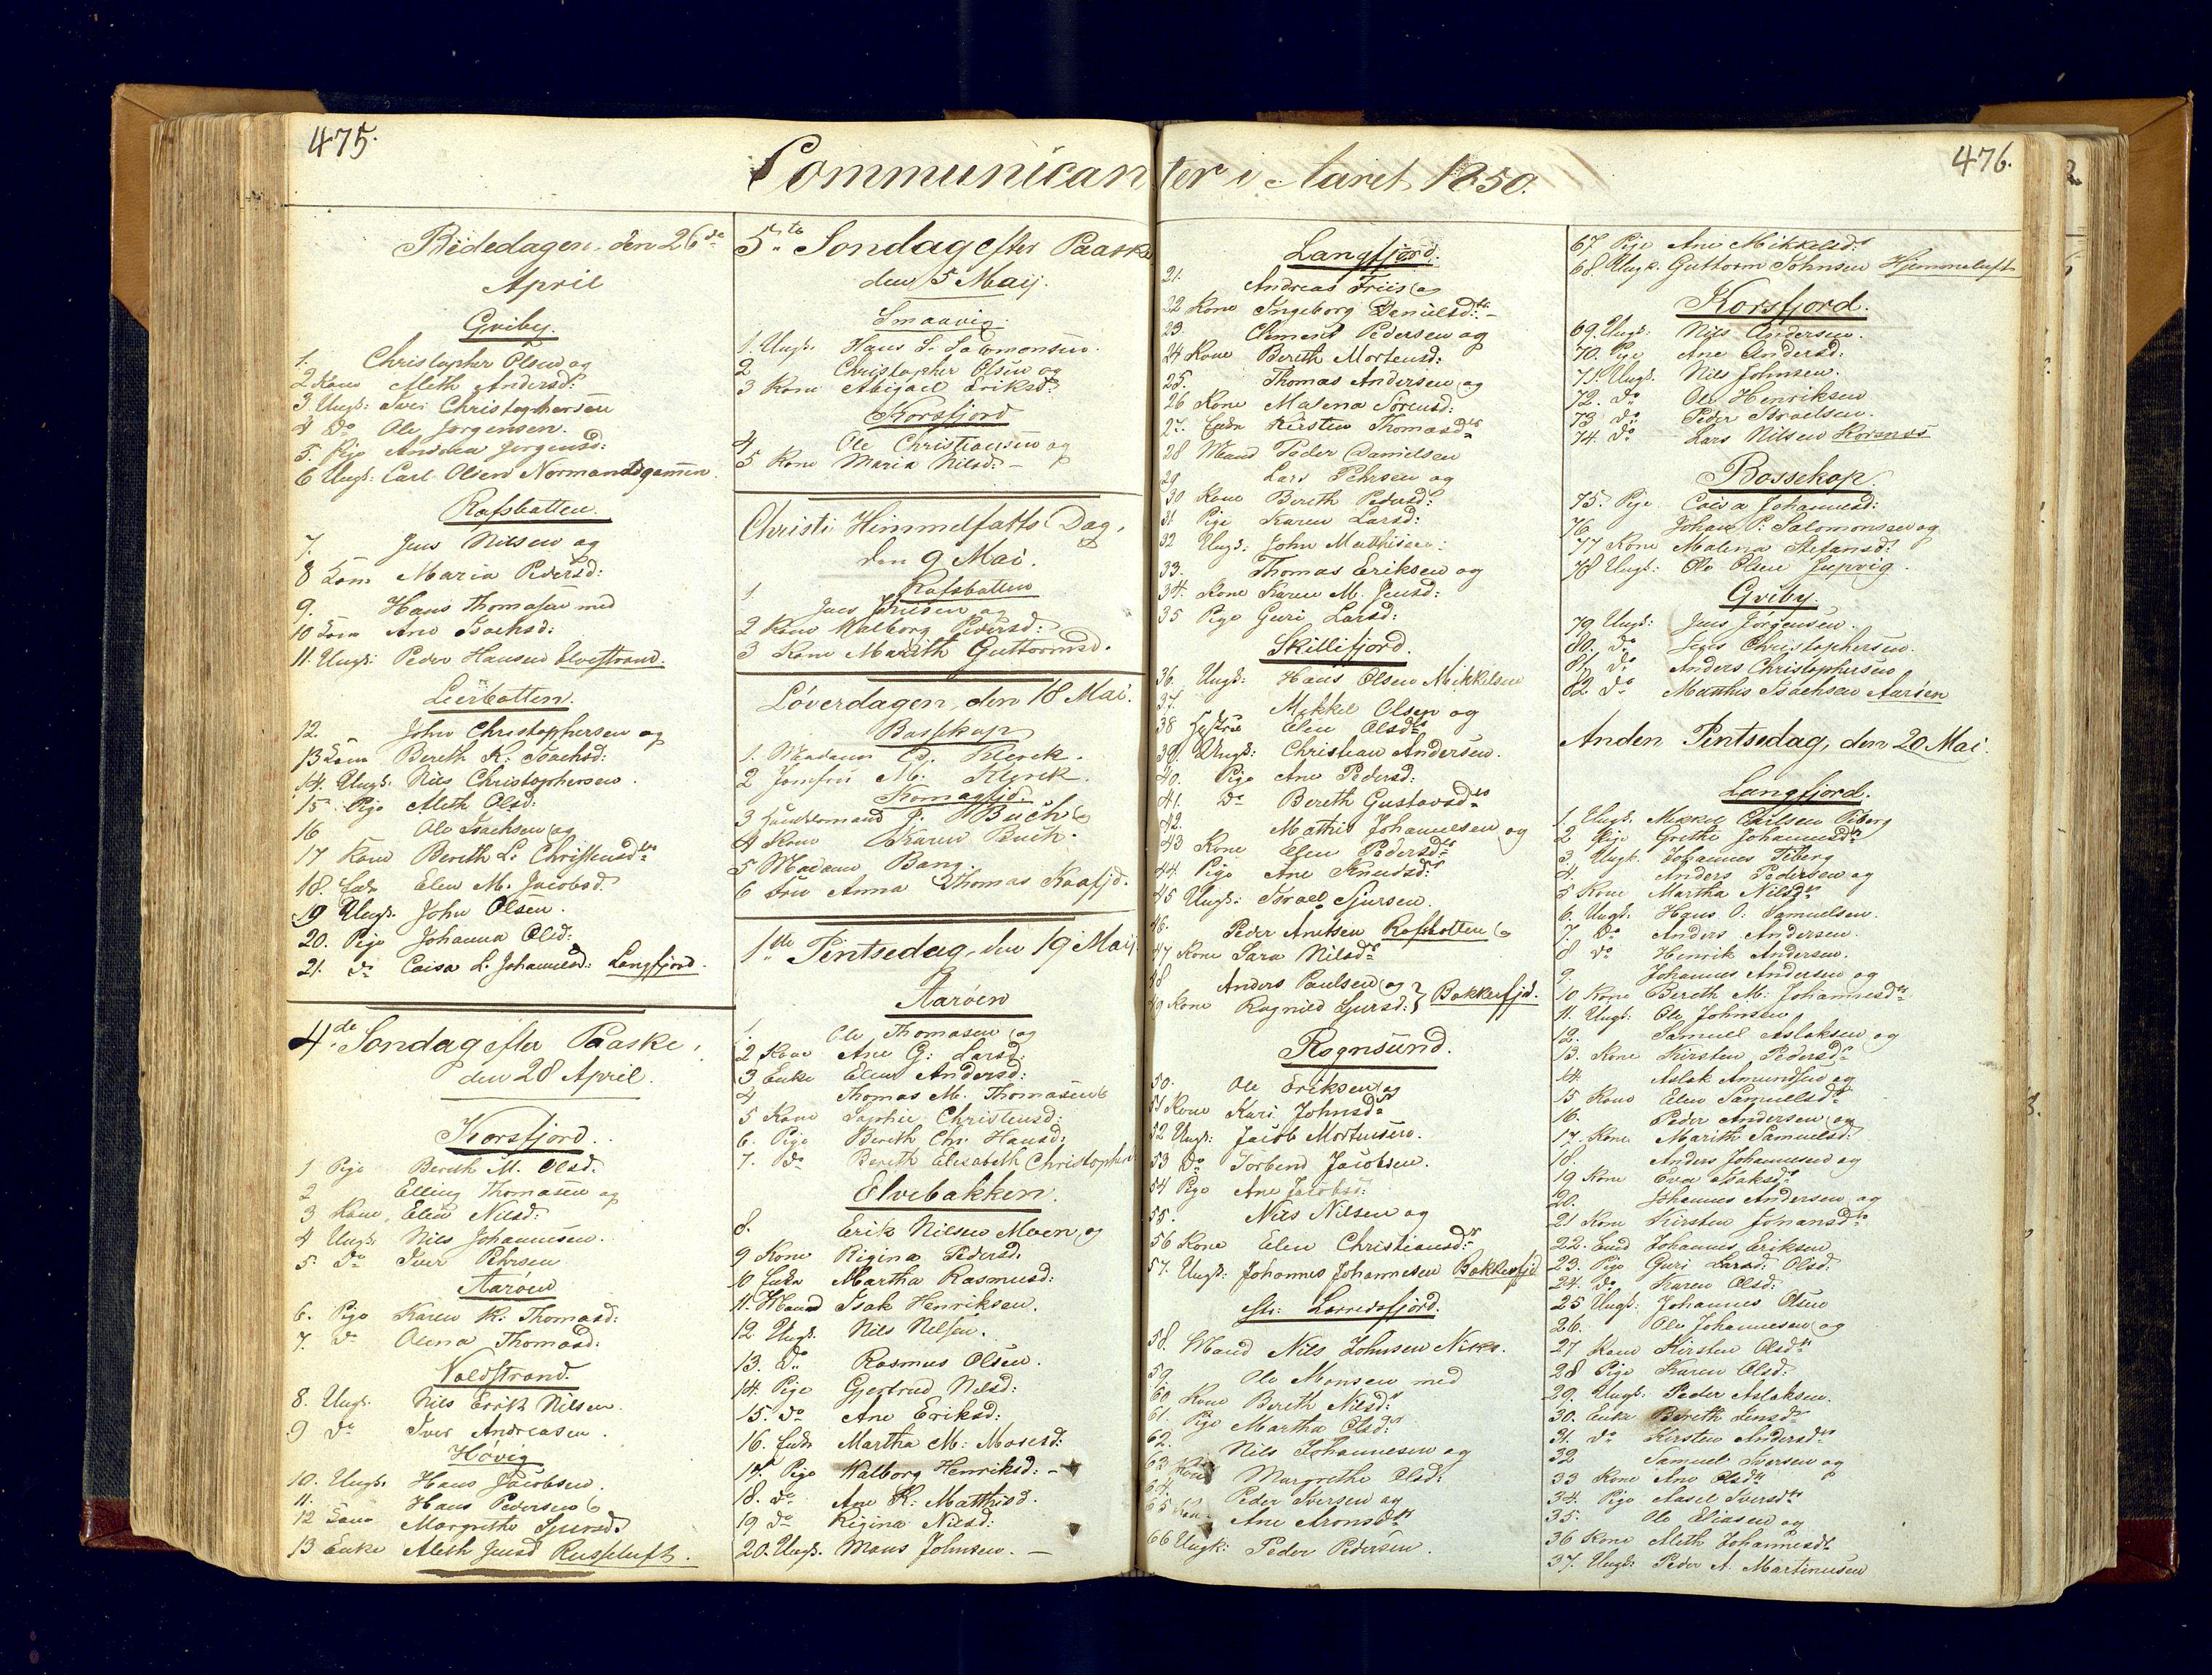 475.
476.
Communicanter i Aaret 1850.
Bededagen, den 26de
April
Gviby.
1. Christopher Olsen og
2 Kone Aleth Andersd:
3 Ungk: Iver Christophersen
4 Do Ole Jørgensen.
5. Pige Andrea Jørgensd:
6 Ungk: Carl Olsen Normandsgamen.
Rafsbotten.
7. Jens Nilsen og
8 Kone Maria Pedersd:
9. Hans Thomasen med
10 Kone Ane Isachsd:
11. Ungk: Peder Hansen Elvestrand.
Leerbotten.
12. John Christophersen og
13 Kone Bereth K: Isachsd:
14. Ungk. Nils Christophersen.
15 Pige Aleth Olsd:
16 Ole Isachsen og
17 Kone Bereth L: Christensdtr
18. Enke Elen M. Jacobsd.
19 Ungk. John Olsen.
20. Pige Johanna Olsd:
21. do Caisa L. Johannesd: Langfjord.
4de Søndag efter Paaske,
den 28 April.
Korsfjord.
1 Pige Bereth M. Olsd.
2 Elling Thomasen og
3 Kone Elen Nilsd:
4 Ungk Nils Johannesen.
5. do Iver Pehrsen
Aarøen
6. Pige Karen K: Thomasd:
7. do Olena Thomasd:
Noldstrand.
8. Ungk. Nils Erik Nilsen.
9 do Iver Andreasen.
Høvig
10. Ungk. Hans Jacobsen.
11. Hans Pedersen &
12 Kone Margrethe Sjursd.
13 Enke Aleth Jensd Russeluft.
5te Søndag efter Paaske
den 5 Maij.
Smaavig.
1. Ungk. Hans S. Salomonsen.
2 Christopher Olsen og
3 Kone Abigael Eriksd.
Korsfjord
4. Ole Christiansen og
5 Kone Maria Nilsd. -
Christi Himmelfarts Dag,
den 9 Mai.
Rafsbotten
1. Jens Nilsen og
2 Kone Walborg Pedersd:
3 Kone Mareth Guttormsd.
Løverdagen, den 18 Mai.
Bossekop
1. Madame Klerck.
2 Jomfru M. Klerck.
Komagfjd.
3 Handelsmand J. Buch &
4 Kone Karen Buch.
5 Madame Bang.
6 Fru Anna Thomas Kaafjd.
1ste Pintsedag, den 19 Maij
Aarøen
1. Ole Thomasen og
2 Kone Ane G: Larsd:
3 Enke Elen Andersd:
4 Thomas M. Thomasen &
5 Kone Sophie Christensd.
6. Pige Bereth Chr. Hansd:
7. do Bereth Elisabeth Christophers
Elvebakken.
8. Erik Nilsen Moen, og
9 Kone Rigina Pedersd.
10 Enke Martha Rasmusd:
11. Mand Isak Henriksen.
12 Ungk. Nils Nilsen.
13. do Rasmus Olsen.
14. Pige Gjertrud Nilsd:
15. do Ane Eriksd:
16. Enke Martha M: Mosesd:
17. Pige Walborg Henriksd: -
18. do Ane K: Matthisd.
19 do Rigina Nilsd:
20. Ungk. Mons Johnsen. -
Langfjord.
21. Andreas Friis og
22 Kone Ingeborg Danielsdtr -
23 Clement Pedersen og
24 Kone Bereth Mortensd:
25. Thomas Andersen og
26 Kone Malena Sørensd:
27. Enke Kirsten Thomasdtr
28 Mand Peder Danielsen
29 Lars Pehrsen og
30 Kone Bereth Pedersd:
31 Pige Karen Larsd:
32 Ungk: John Mathisen:
33. Thomas Eriksen og
34. Kone Karen M. Jensd:
35 Pige Guri Larsd:
Skillifjord.
36. Ungk: Hans Olsen Mikkelsen
37. Mikkel Olsen og
38 Hustru Elen Olsdtr
39. Ungk: Christian Andersen.
40. Pige Ane Pedersd:
41. do Bereth Gustavsdtr
42. Mathis Johannesen og
43 Kone Elen Pedersdtr
44. Pige Ane Knudsdtr
45 Ungk: Israel Sjursen.
46. Peder Antsen Rafsbotten &
47 Kone Sara Nilsdtr
48 Anders Paulsen og
49 Kone Ragnild Sjursd: } Bakkerfjd.
Rognsund.
50. Ole Eriksen og
51 Kone Kari Johnsdtr
52 Ungk: Jacob Mortensen.
53 do Torbend Jacobsen.
54 Pige Ane Jacobsd:
55. Nils Nilsen og
56 Kone Elen Christiansdtr
57. Ungk: Johannes Johannesen Bakkerfjd
St: Lerredsfjord.
58. Mand Nils Johnsen Nika.
59. Ole Monsen med
60 Kone Bereth Nilsd:
61. Pige Martha Olsd:
62. Nils Johannesen og
63 Kone Margrethe Olsd:
64. Peder Iversen og
65 Kone Ane Aronsdtr
66 Ungk: Peder Pedersen.
67. Pige Ane Mikkelsd:
68. Ungk. Guttorm Johnsen Hjemmeluft
Korsfjord.
69. Ungk. Nils Andersen.
70. Pige Ane Andersd:
71. Ungk. Nils Johnsen.
72. do Ole Henriksen
73 do Peder Israelsen.
74. do Lars Nilsen Korsnes
Bossekop.
75. Pige Caisa Johannesd:
76 Johan P. Salomonsen og
77 Kone Malena Stefansd:
78 Ungk: Ole Olsen Jupvig.
Gviby.
79 Ungk: Jens Jørgensen.
80. do Christophersen.
81. do Anders Christophersen
82 do Matthis Isachsen Aarøen
Anden Pintsedag, den 20 Mai.
Langfjord.
1. Ungk. Mikkel Carlsen Tiberg
2 Pige Grethe Johannesdtr
3. Ungk. Johannes Tiberg
4. Anders Pedersen og
5 Kone Martha Nilsdtr
6. Ungk. Hans O: Samuelsen.
7. do Anders Andersen.
8 do Henrik Andersen.
9. Johannes Andersen og
10 Kone Bereth M: Johannesdtr
11. Ungk: Ole Johnsen
12. Samuel Aslaksen og
13. Kone Kirsten Pedersdtr
14. Aslak Amundsen og
15 Kone Elen Samuelsdtr
16. Peder Andersen og
17. Kone Marith Samuelsd:
18. Anders Johannesen og
19 Kone Eva Isaksdtr
20. Johannes Andersen og
21 Kone Kirsten Johansdtr
22. Johannes Eriksen
23. Pige Guri Larsd: Olsd:
24. do Karen Olsd:
25 Ungk: Johannes Olsen
26. Ole Johannesen og
27 Kone Kirsten Olsdtr
28 Pige Karen Olsd:
29. Ungk: Peder Aslaksen.
30. Enke Bereth Jensdtr
31. do Kirsten Andersdtr
32 Samuel Iversen og
33 Kone Ane Olsdtr
34. Pige Aasel Iversdtr
35. Ole Eliasen og
36 Kone Aleth Johannesdtr
37. Ungk: Peder A. Martinusen